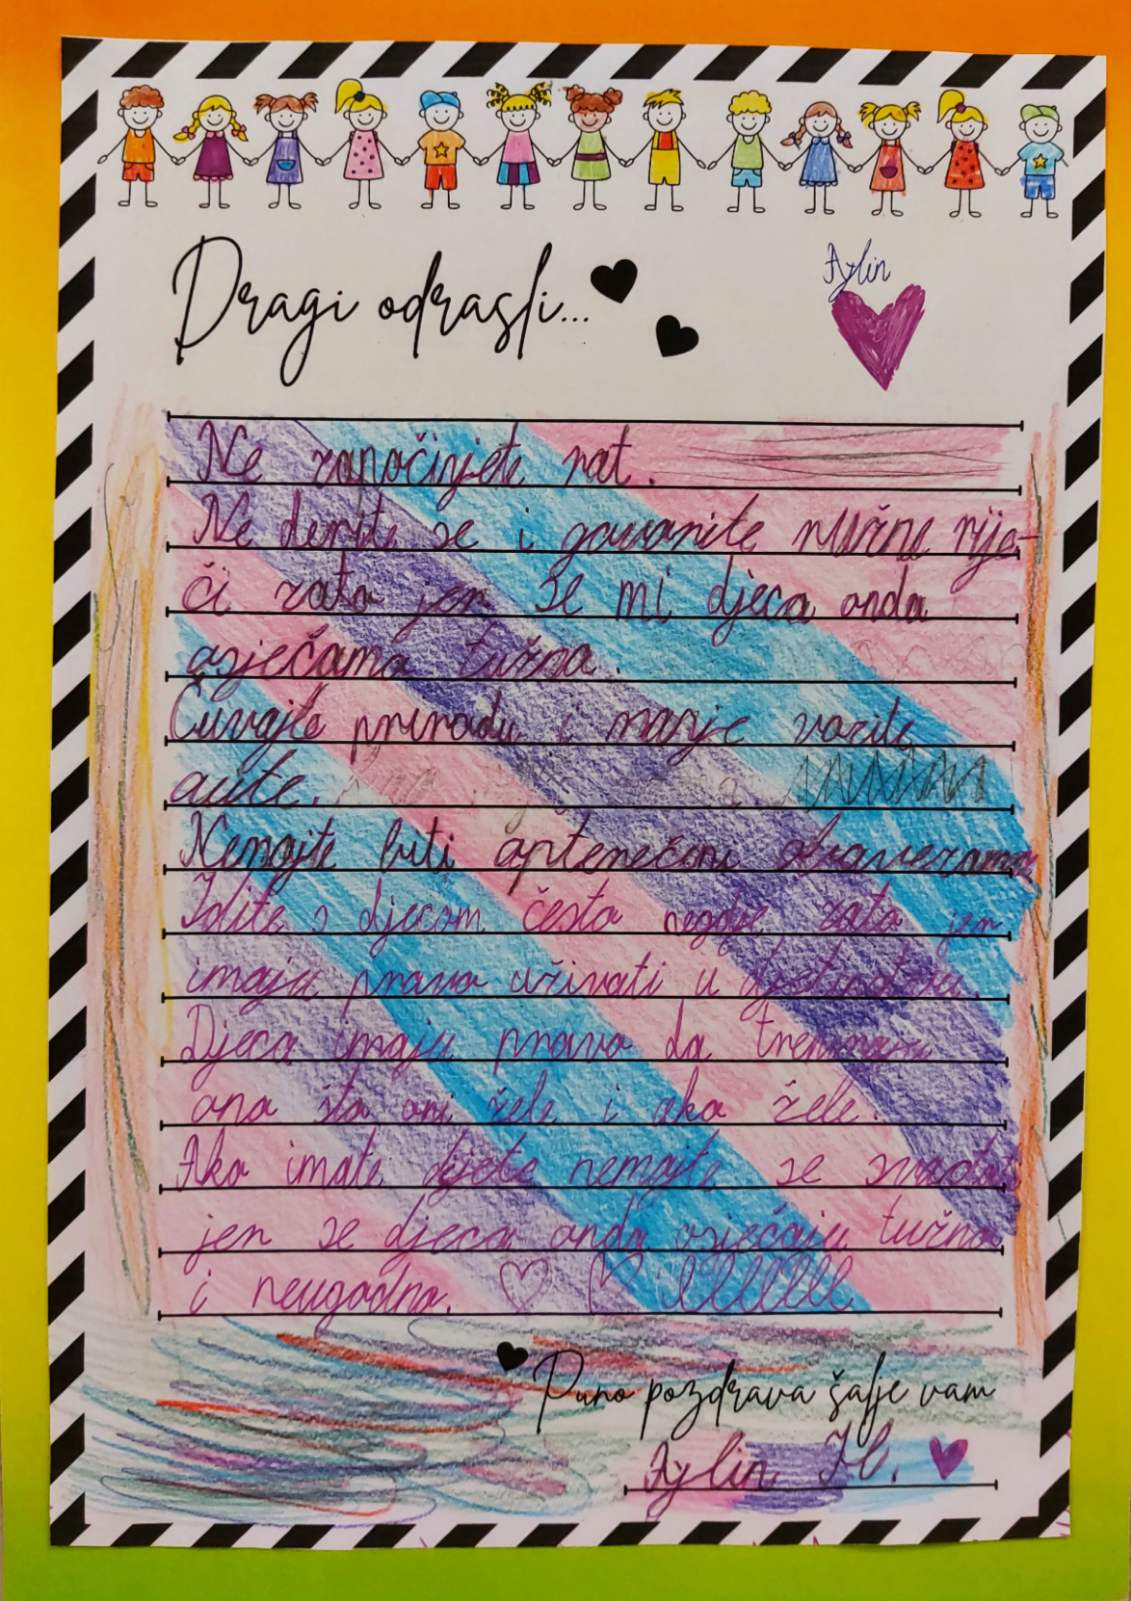 Dragi odrasli...
Aylin
Ne započinjete rat.
Ne derite se i govorite ružne rije-
či zato jer se mi djeca onda
osječamo tužno.
Čuvajte prirodu i manje vozite
aute.
Nemojte biti opterečeni obavezama
Idite s djecom često negdje, zato jer
imaju pravo uživati u djetinjstvu.
Djeca imaju pravo da treniraju
ono šta oni žele i ako žele.
Ako imate dijete nemojte se svađati
jer se djeca onda osjećaju tužno
i neugodno.
Puno pozdrava šalje vam
Aylin H.